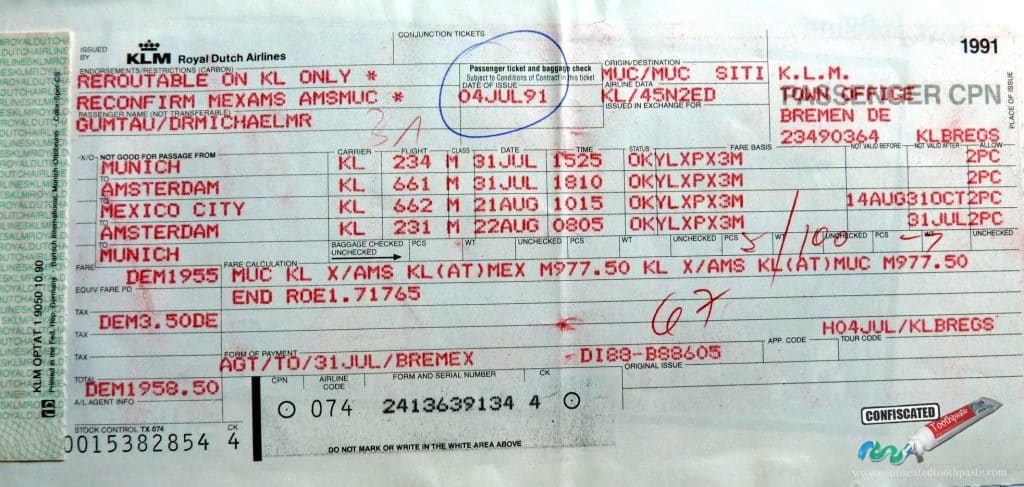 CONJUNCTION TICKETS
ISSUED BY KLM Royal Dutch Airlines 1991
Passenger ticket and baggage check ORIGIN/DESTINATION
ENDORSEMENTS/RESTRICTIONS (CARBON) Subject to Conditions of Contract in this ticket
REROUTABLE ON KL ONLY * MUC/MUC SITI K.L.M.
DATE OF ISSUE AIRLINE DATA PASSENGER CPN
RECONFIRM MEXAMS AMSMUC * 04JUL91 KL/45N2ED TOWN OFFICE
PASSENGER NAME (NOT TRANSFERABLE) ISSUED IN EXCHANGE FOR PLACE OF ISSUE
GUMTAU/DRMICHAELMR BREMEN DE
23490364 KLBREGS
X/O NOT GOOD FOR PASSAGE FROM CARRIER FLIGHT CLASS DATE TIME STATUS FARE BASIS NOT VALID BEFORE NOT VALID AFTER ALLOW
MUNICH KL 234 M 31JUL 1525 OKYLXPX3M 2PC
TO AMSTERDAM KL 661 M 31JUL 1810 OKYLXPX3M 2PC
TO MEXICO CITY KL 662 M 21AUG 1015 OKYLXPX3M 14AUG31OCT2PC
TO AMSTERDAM KL 231 M 22AUG 0805 OKYLXPX3M 31JUL2PC
TO MUNICH BAGGAGE CHECKED UNCHECKED PCS WT UNCHECKED PCS WT UNCHECKED PCS WT UNCHECKED PCS WT UNCHECKED
5/100
FARE FARE CALCULATION
DEM1955 MUC KL X/AMS KL(AT)MEX M977.50 KL X/AMS KL(AT)MUC M977.50
EQUIV FARE PD
END ROE1.71765
TAX
DEM3.50DE 67 H04JUL/KLBREGS
TAX FORM OF PAYMENT APP. CODE TOUR CODE
AGT/TO/31JUL/BREMEX DI88-B88605
TOTAL ORIGINAL ISSUE
DEM1958.50
A/L AGENT INFO CPN AIRLINE CODE FORM AND SERIAL NUMBER CK
074 2413639134 4
STOCK CONTROL TX 074 CK
0015382854 4
DO NOT MARK OR WRITE IN THE WHITE AREA ABOVE
KLM OPTAT 1 9050 10.90
CONFISCATED
Toothpaste
www.confiscatedtoothpaste.com